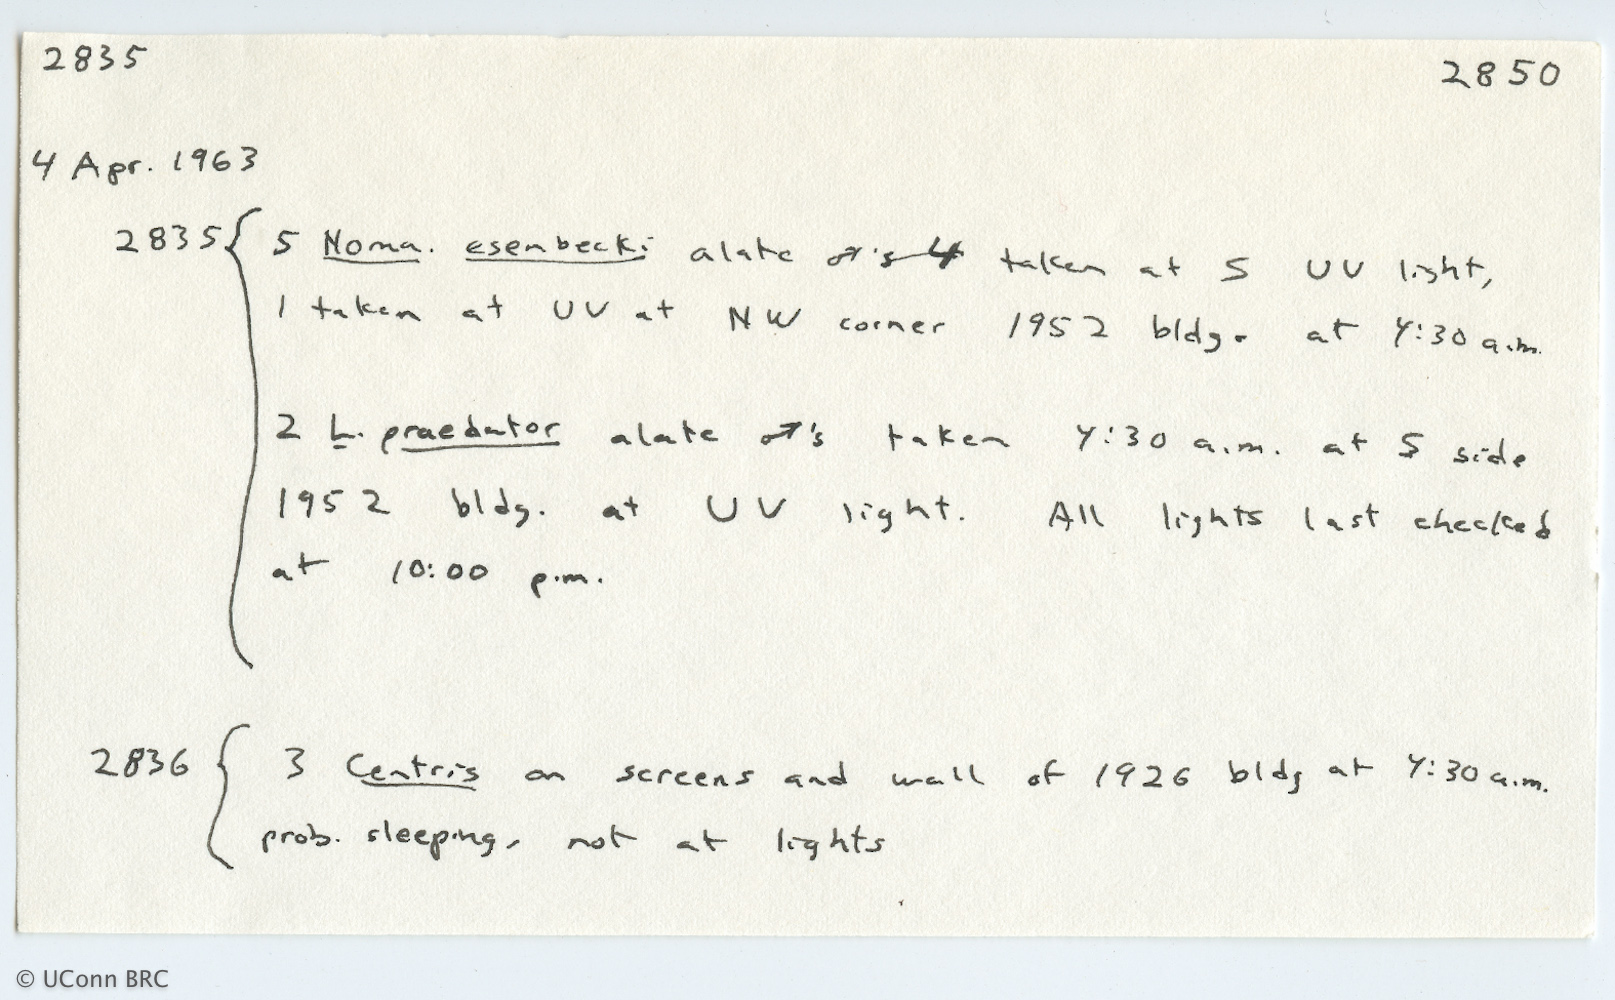 2835 2850
4 Apr. 1963
2835 { 5 Noma. esenbecki alate ♂'s 4 taken at S UV light,
1 taken at UV at NW corner 1952 bldg. at 4:30 a.m.
2 L. praedator alate ♂'s taken 4:30 a.m. at S side
1952 bldg. at UV light. All lights last checked
at 10:00 p.m.
2836 { 3 Centris on screens and wall of 1926 bldg at 4:30 a.m.
prob. sleeping, not at lights
© UConn BRC